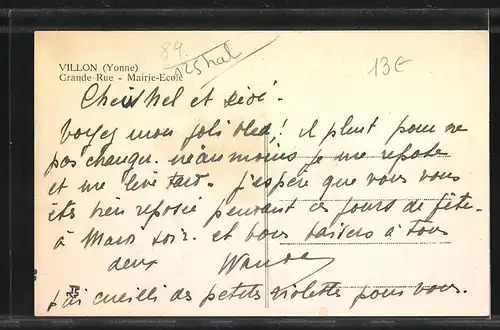 89.
125 hal
13€
VILLON (Yonne)
Grande Rue - Mairie-Ecole
et
Voyez mon joli bled! il pleut pour ne
pas changer. néanmoins je me repose
et me lève tard. j'espère que vous vous
êtes bien reposé pendant ces jours de fête.
à Mardi soir. et bons baisers à tous
deux Wanda
j'ai cueilli des petites violettes pour vous.